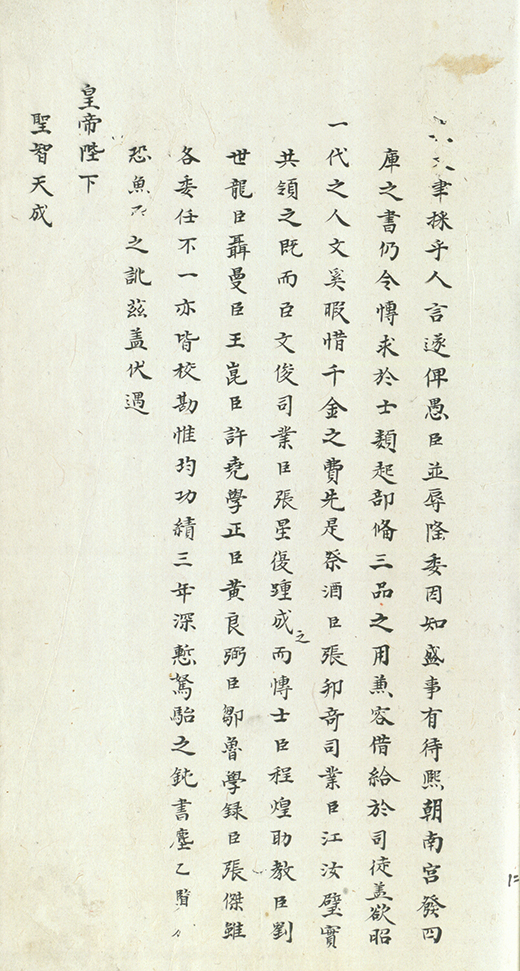 聿採乎人言遂俾愚臣並辱隆委因知盛事有待熙朝南宫發四
庫之書仍令博求於士類起部俻三品之用兼容借給於司徒盖欲昭
一代之人文奚暇惜千金之費先是祭酒臣張邦奇司業臣江汝璧實
共領之既而臣文俊司業臣張星復踵成之而博士臣程煌助教臣劉
世龍臣聶曼臣王崑臣許堯學正臣黄良弼臣鄒魯學録臣張傑雖
各委任不一亦皆校勘惟均功績三年深慙駑駘之鈍書塵乙覧
恐魚之訛兹盖伏遇
皇帝陛下
聖智天成